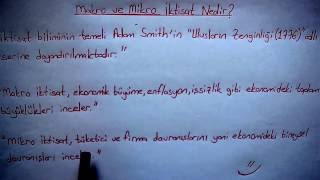 Makro ve Mikro İktisat Nedir?
İktisat biliminin temeli Adam Smith'in "Ulusların Zenginliği (1776)" adlı
eserine dayandırılmaktadır."
Makro iktisat, ekonomik büyüme, enflasyon, işsizlik gibi ekonomideki toplam
büyüklükleri inceler."
"Mikro iktisat, tüketici ve firma davranışlarını yani ekonomideki bireysel
davranışları